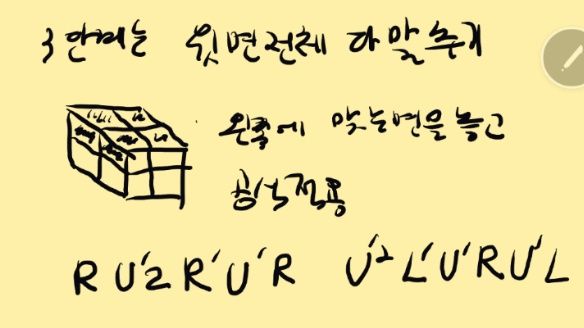 3단계는 윗면전체 다 맞추기
왼쪽에 맞는면을 놓고
공식적용
R U'2 R' U' R U'2 L' U' R U' L